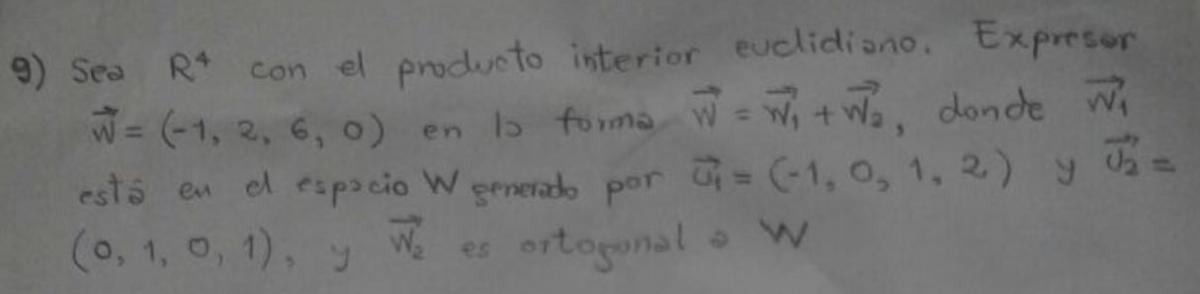 9) Sea R⁴ con el producto interior euclidiano. Expresar
w⃗ = (-1, 2, 6, 0) en la forma w⃗ = w⃗₁ + w⃗₂, donde w⃗₁
está en el espacio W generado por u⃗₁ = (-1, 0, 1, 2) y u⃗₂ =
(0, 1, 0, 1), y w⃗₂ es ortogonal a W